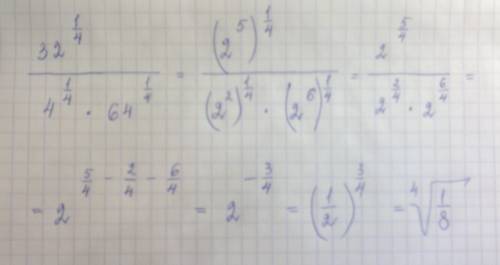 32^{1/4} / (4^{1/4} · 64^{1/4}) = (2^5)^{1/4} / ((2^2)^{1/4} · (2^6)^{1/4}) = 2^{5/4} / (2^{2/4} · 2^{6/4}) =
= 2^{5/4 - 2/4 - 6/4} = 2^{-3/4} = (1/2)^{3/4} = \sqrt[4]{1/8}